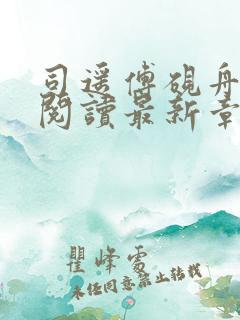 司遥傅硯舟
閱讀最新章
瞿峰雾
未经同意禁止转载